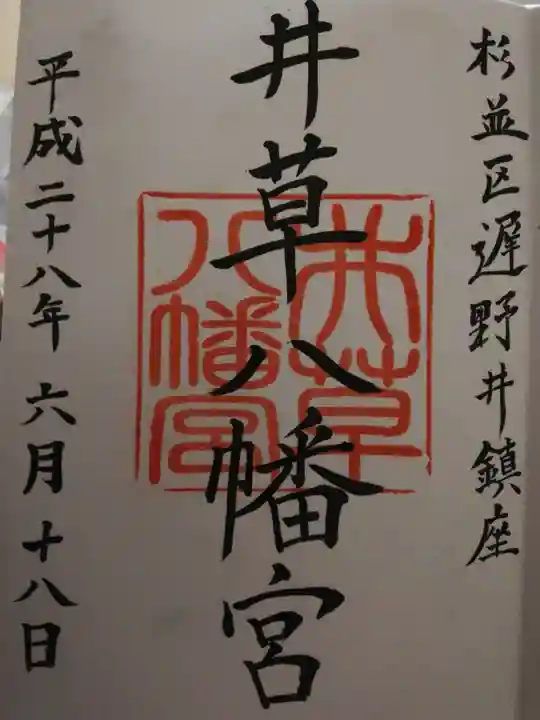 杉並区遅野井鎮座
井草八幡宮
井草
八幡宮
平成二十八年 六月 十八日